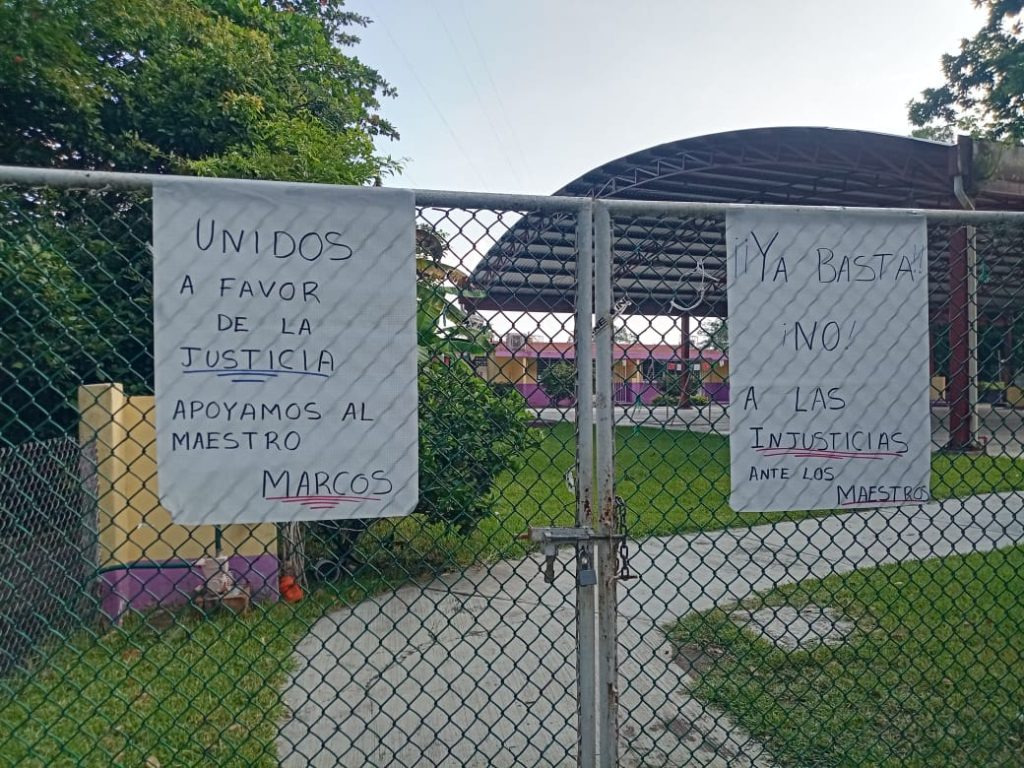 UNIDOS
A FAVOR
DE LA
JUSTICIA
APOYAMOS AL
MAESTRO
MARCOS
¡¡YA BASTA!!
¡NO!
A LAS
INJUSTICIAS
ANTE LOS
MAESTROS